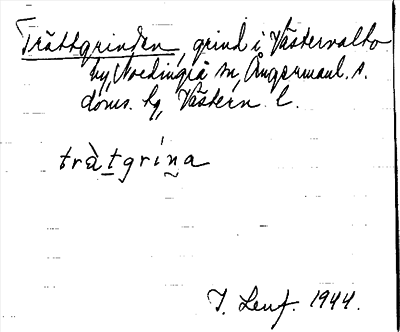 Trättgrinden, grind i Västervalto
by, Nordingrå sn, Ångermanl. s.
doms. hg, Västern. l.
trätgrina
J. Lenf. 1944.